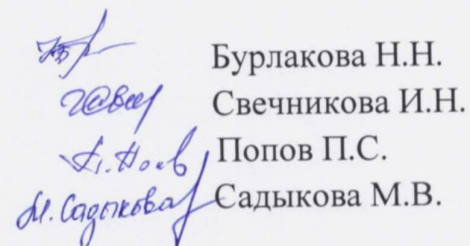 Бурлакова Н.Н.
Свечникова И.Н.
Попов П.С.
М. Садыкова Садыкова М.В.